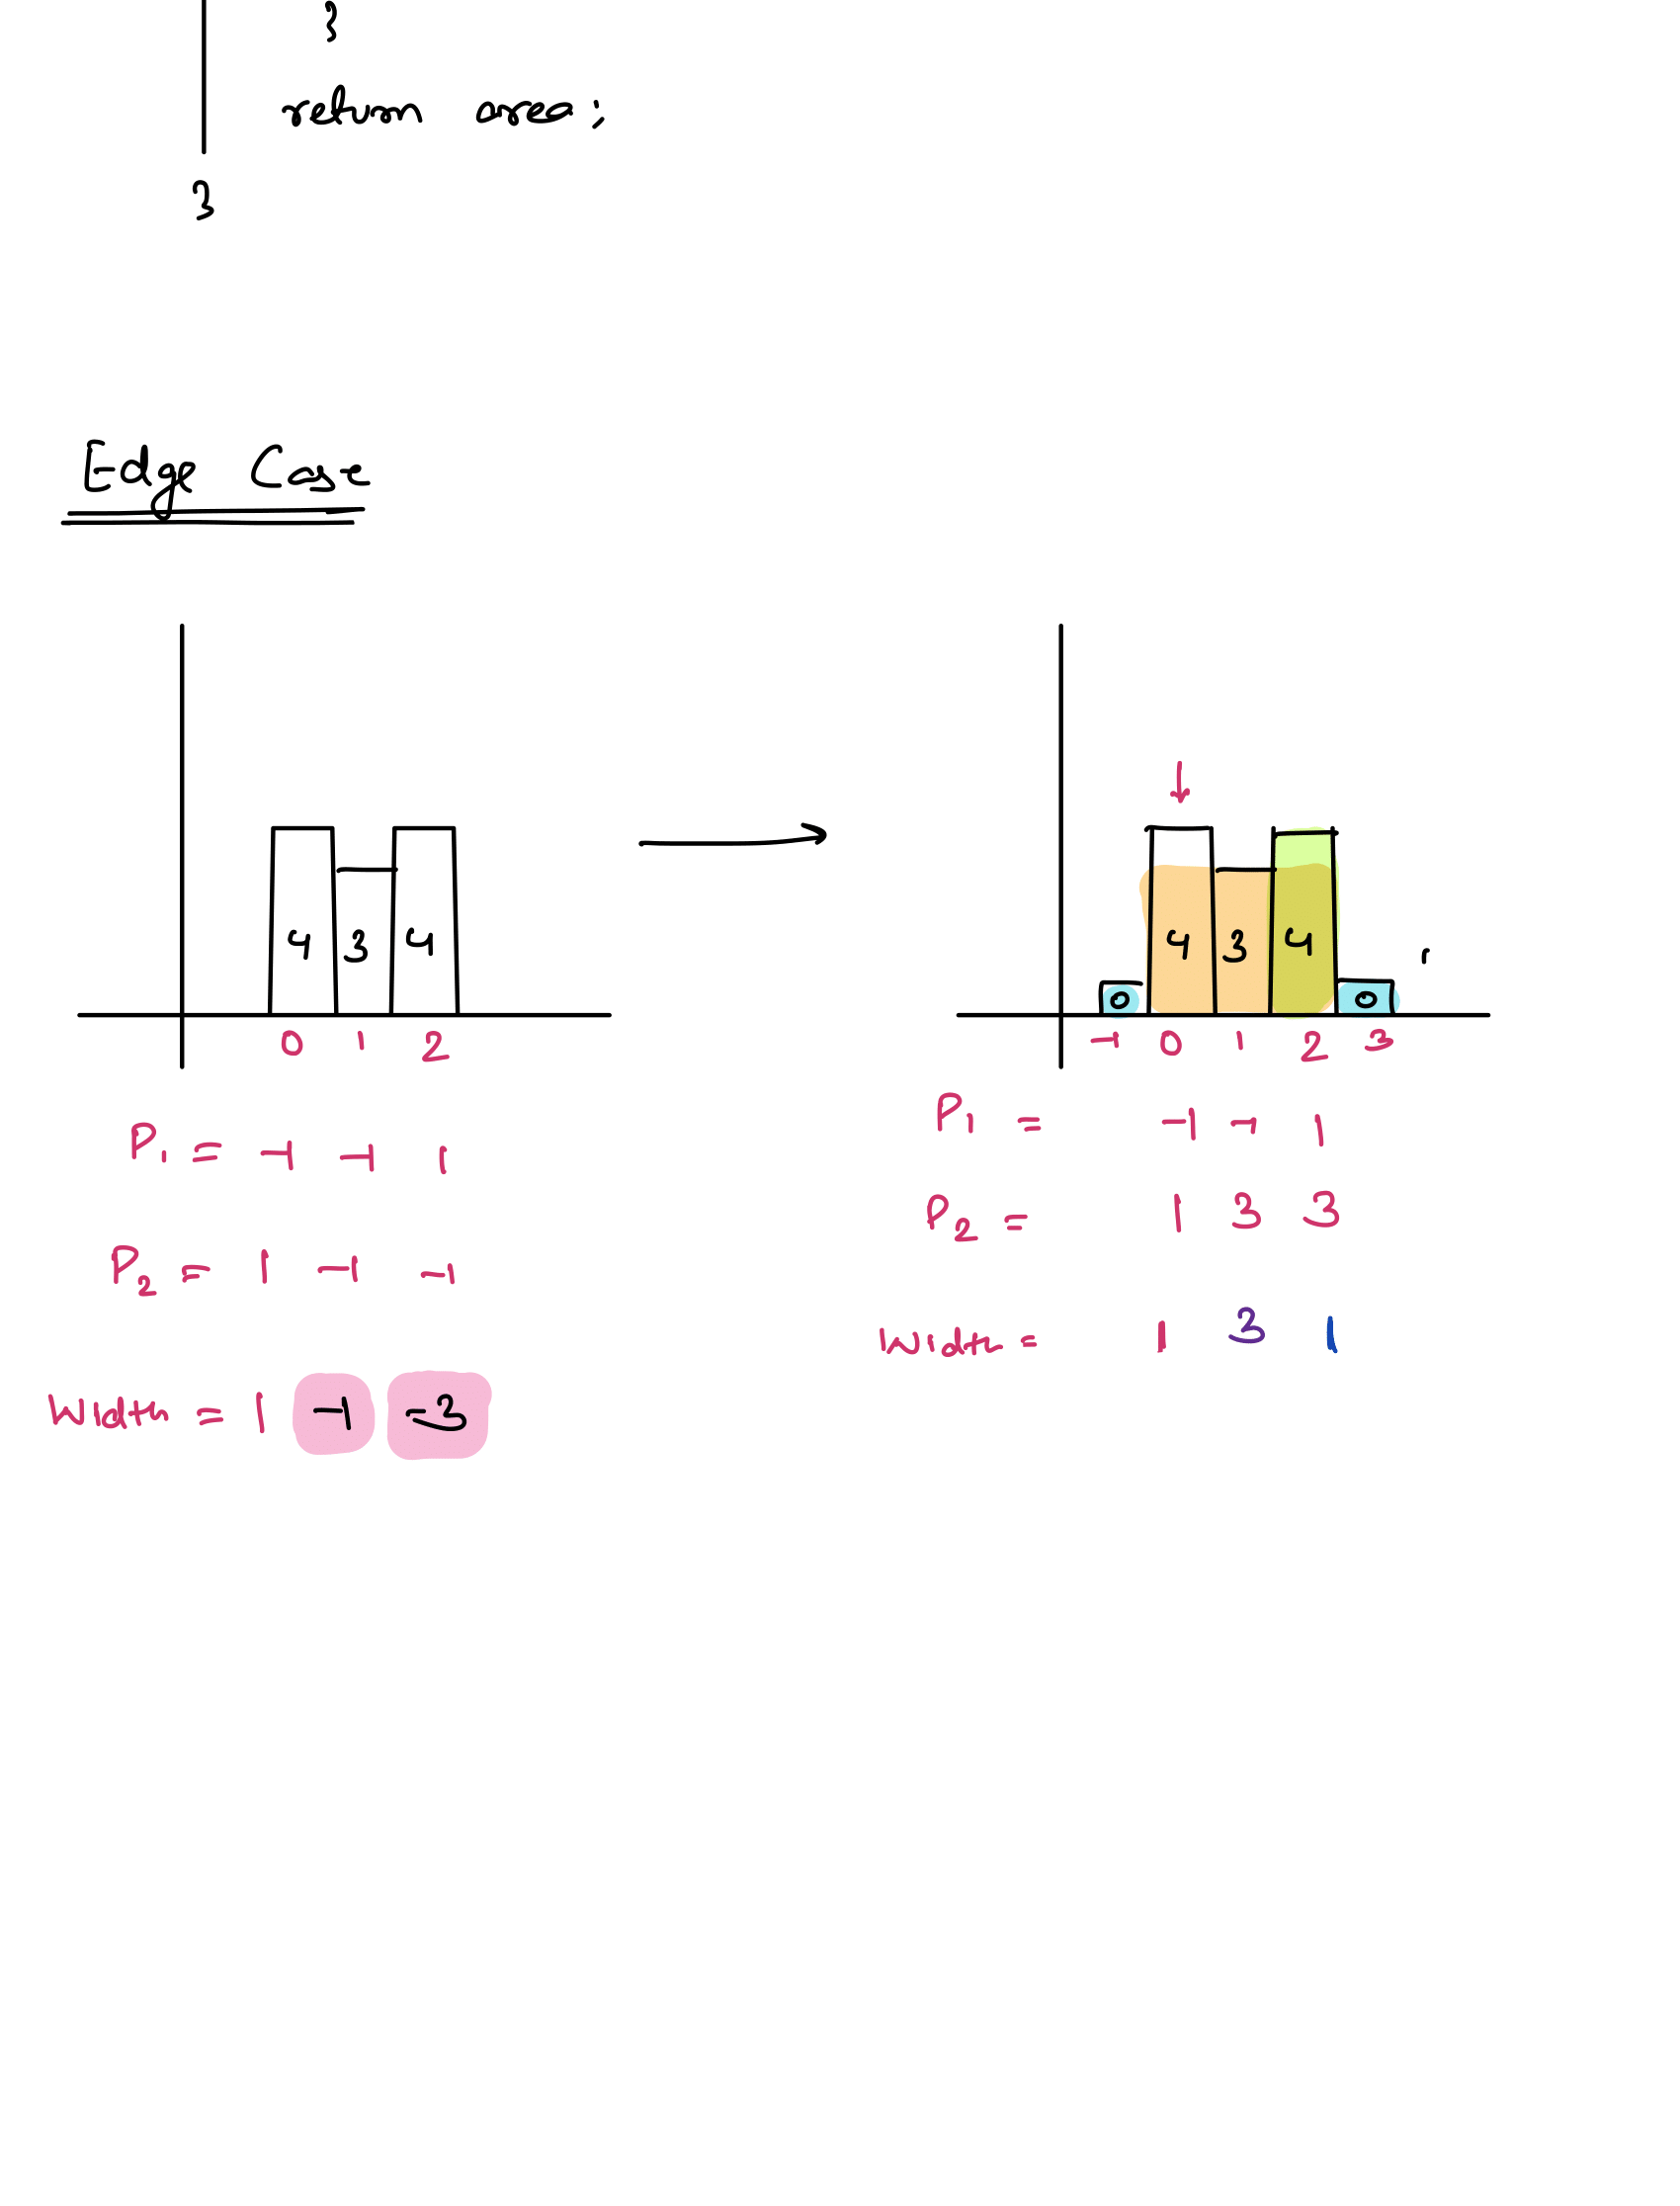 }
return area;
}
Edge Case
4 3 4
0 1 2
P1 = -1 -1 1
P2 = 1 -1 -1
Width = 1 -1 -3
0 4 3 4 0
-1 0 1 2 3
P1 = -1 -1 1
P2 = 1 3 3
Width = 1 3 1